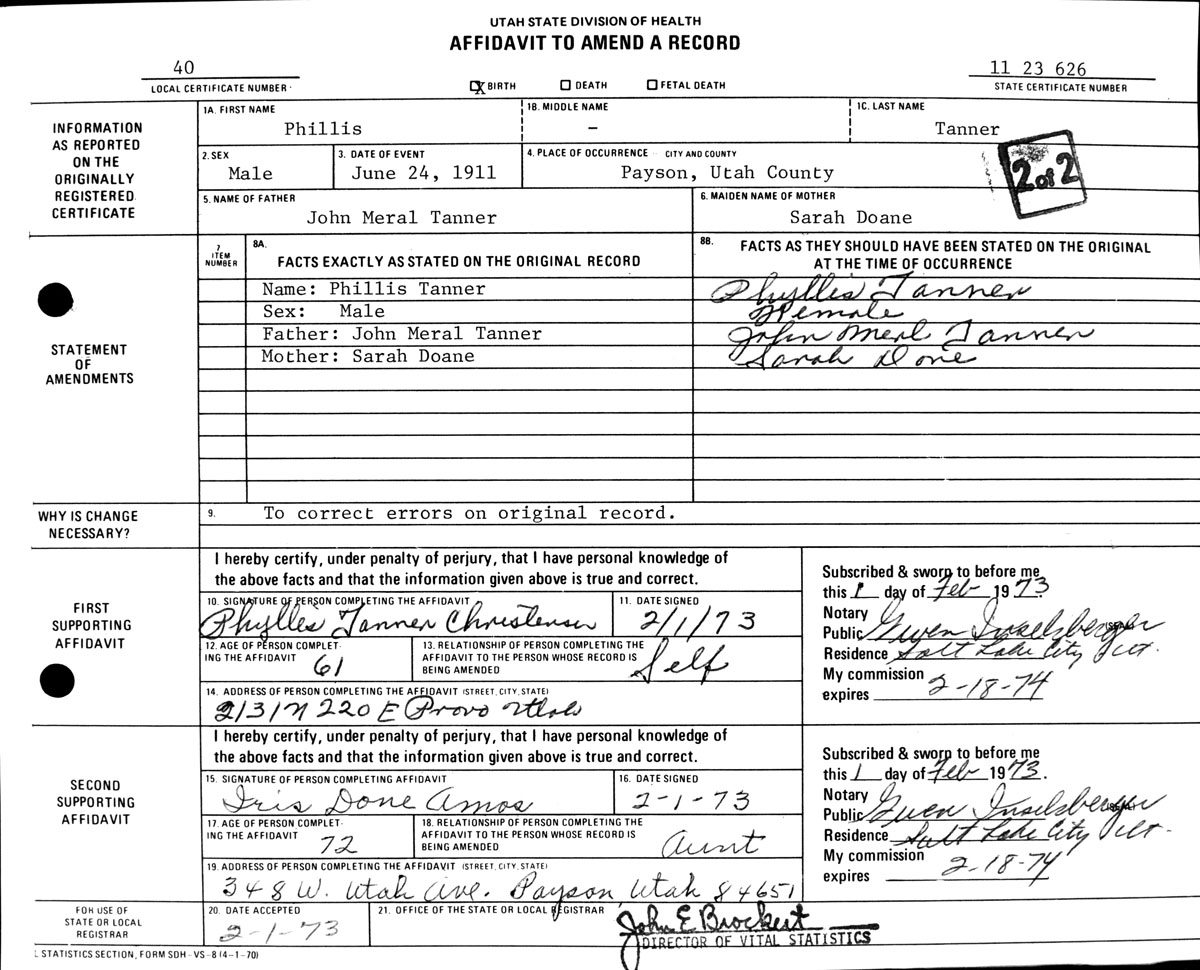 UTAH STATE DIVISION OF HEALTH
AFFIDAVIT TO AMEND A RECORD
40
LOCAL CERTIFICATE NUMBER
X BIRTH DEATH FETAL DEATH
11 23 626
STATE CERTIFICATE NUMBER
INFORMATION
AS REPORTED
ON THE
ORIGINALLY
REGISTERED
CERTIFICATE
1A. FIRST NAME
Phillis
1B. MIDDLE NAME
–
1C. LAST NAME
Tanner
2. SEX
Male
3. DATE OF EVENT
June 24, 1911
4. PLACE OF OCCURRENCE CITY AND COUNTY
Payson, Utah County
2 of 2
5. NAME OF FATHER
John Meral Tanner
6. MAIDEN NAME OF MOTHER
Sarah Doane
STATEMENT
OF
AMENDMENTS
7
ITEM
NUMBER
8A.
FACTS EXACTLY AS STATED ON THE ORIGINAL RECORD
8B. FACTS AS THEY SHOULD HAVE BEEN STATED ON THE ORIGINAL
AT THE TIME OF OCCURRENCE
Name: Phillis Tanner
Phyllis Tanner
Sex: Male
Female
Father: John Meral Tanner
John Merl Tanner
Mother: Sarah Doane
Sarah Done
WHY IS CHANGE
NECESSARY?
9. To correct errors on original record.
FIRST
SUPPORTING
AFFIDAVIT
I hereby certify, under penalty of perjury, that I have personal knowledge of
the above facts and that the information given above is true and correct.
10. SIGNATURE OF PERSON COMPLETING THE AFFIDAVIT
Phyllis Tanner Christensen
11. DATE SIGNED
2/1/73
12. AGE OF PERSON COMPLET-
ING THE AFFIDAVIT 61
13. RELATIONSHIP OF PERSON COMPLETING THE
AFFIDAVIT TO THE PERSON WHOSE RECORD IS
BEING AMENDED
Self
14. ADDRESS OF PERSON COMPLETING THE AFFIDAVIT (STREET, CITY, STATE)
2131 N 220 E Provo Utah
Subscribed & sworn to before me
this 1 day of Feb 1973
Notary
Public Gwen Inselsberger
Residence Salt Lake City Ut.
My commission
expires 2-18-74
SECOND
SUPPORTING
AFFIDAVIT
I hereby certify, under penalty of perjury, that I have personal knowledge of
the above facts and that the information given above is true and correct.
15. SIGNATURE OF PERSON COMPLETING AFFIDAVIT
Iris Done Amos
16. DATE SIGNED
2-1-73
17. AGE OF PERSON COMPLET-
ING THE AFFIDAVIT 72
18. RELATIONSHIP OF PERSON COMPLETING THE
AFFIDAVIT TO THE PERSON WHOSE RECORD IS
BEING AMENDED
Aunt
19. ADDRESS OF PERSON COMPLETING THE AFFIDAVIT (STREET, CITY, STATE)
348 W. Utah Ave. Payson, Utah 84651
Subscribed & sworn to before me
this 1 day of Feb 1973.
Notary
Public Gwen Inselsberger
Residence Salt Lake City Ut.
My commission
expires 2-18-74
FOR USE OF
STATE OR LOCAL
REGISTRAR
20. DATE ACCEPTED
2-1-73
21. OFFICE OF THE STATE OR LOCAL REGISTRAR
John E Brockert
DIRECTOR OF VITAL STATISTICS
L STATISTICS SECTION, FORM SDH-VS-8 (4-1-70)